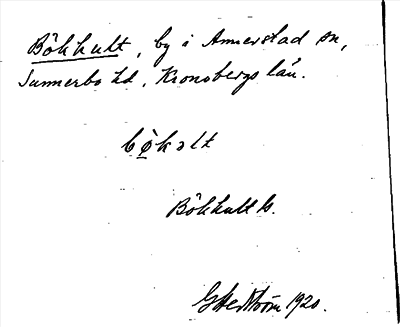 Bökhult, by i Annerstad sn,
Sunnerbo hd, Kronobergs län.
bǿkȯlt
Bökhult k.
G Hedström 1920.